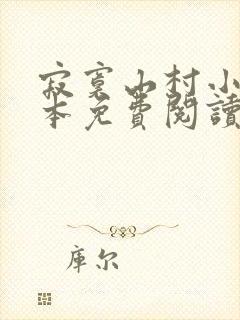 寂寞山村小
本免費閱讀
库尔